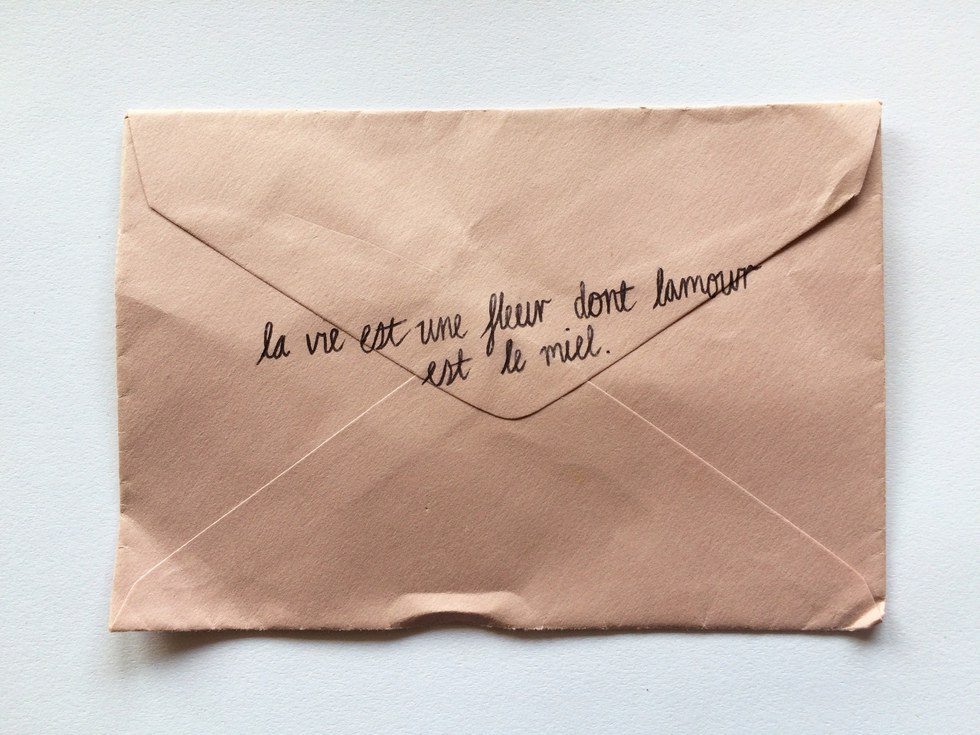 la vie est une fleur dont lamour
est le miel.